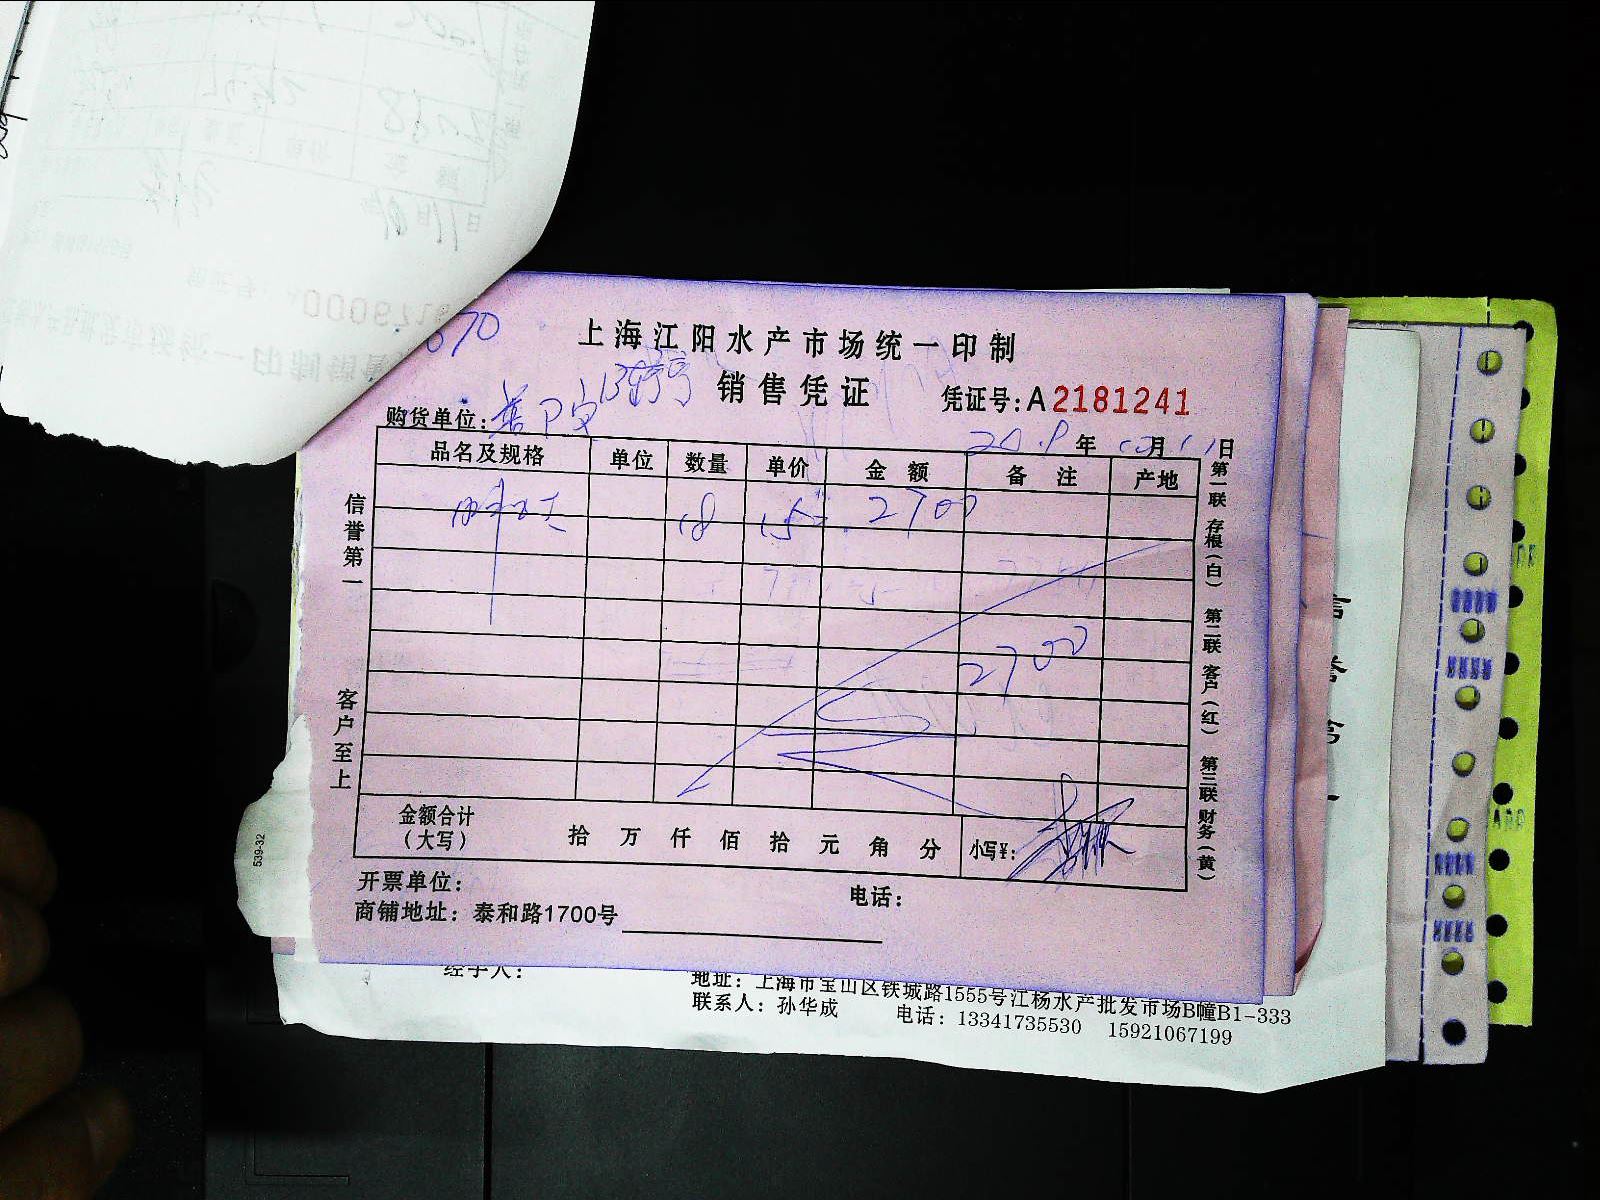 上海江阳水产市场统一印制
销售凭证
凭证号:A2181241
购货单位:
年 月 日
品名及规格 单位 数量 单价 金额 备注 产地
18 2700
2700
信誉第一
客户至上
第一联 存根(白) 第二联 客户(红) 第三联 财务(黄)
金额合计
(大写) 拾 万 仟 佰 拾 元 角 分 小写¥:
开票单位: 电话:
商铺地址: 泰和路1700号
经手人:
地址: 上海市宝山区铁城路1555号江杨水产批发市场B幢B1-333
联系人: 孙华成 电话: 13341735530 15921067199
539-32